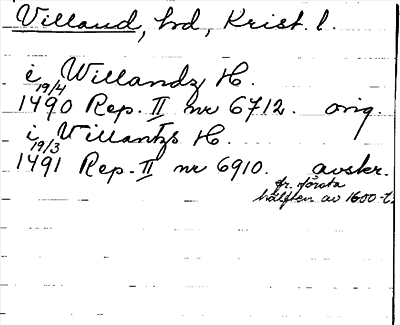 Villand, hd, Krist. l.
i Willandz H.
19/4
1490 Rep. II nr 6712. orig.
i Villantzs H.
19/3
1491 Rep. II nr 6910. avskr.
fr. första
hälften av 1600-t.